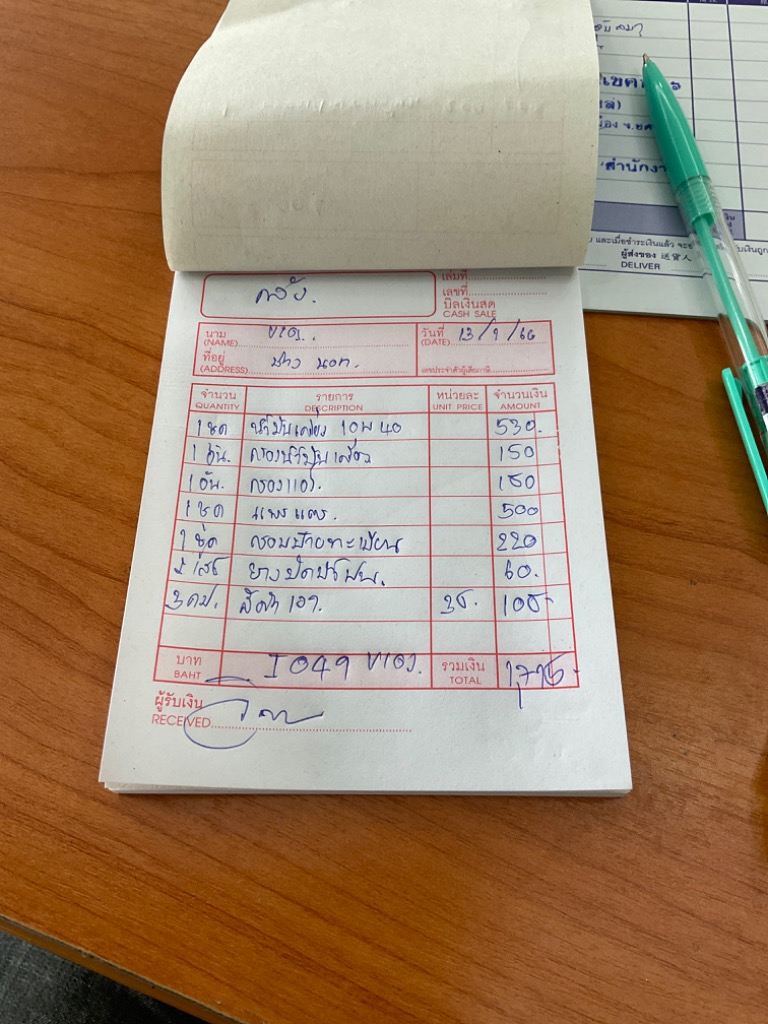 เล่มที่
เลขที่
บิลเงินสด
CASH SALE
นาม
(NAME)
วันที่ 13/9/66
(DATE)
ที่อยู่
(ADDRESS) ช่าง นอท.
เลขประจำตัวผู้เสียภาษี
จำนวน รายการ หน่วยละ จำนวนเงิน
QUANTITY DESCRIPTION UNIT PRICE AMOUNT
1 ชุด น้ำมันเครื่อง 10W 40 530.
1 อัน. กรองน้ำมันเครื่อง 150
1 อัน. กรองแอร์. 150
1 ชุด 500
1 ชุด กรอบป้ายทะเบียน 220
2 เส้น 60.
3 35. 105
บาท 1049 รวมเงิน 1,715.-
BAHT TOTAL
ผู้รับเงิน
RECEIVED
สำนักงา
และเมื่อชำระเงินแล้ว
ผู้ส่งของ 送貨人
DELIVER